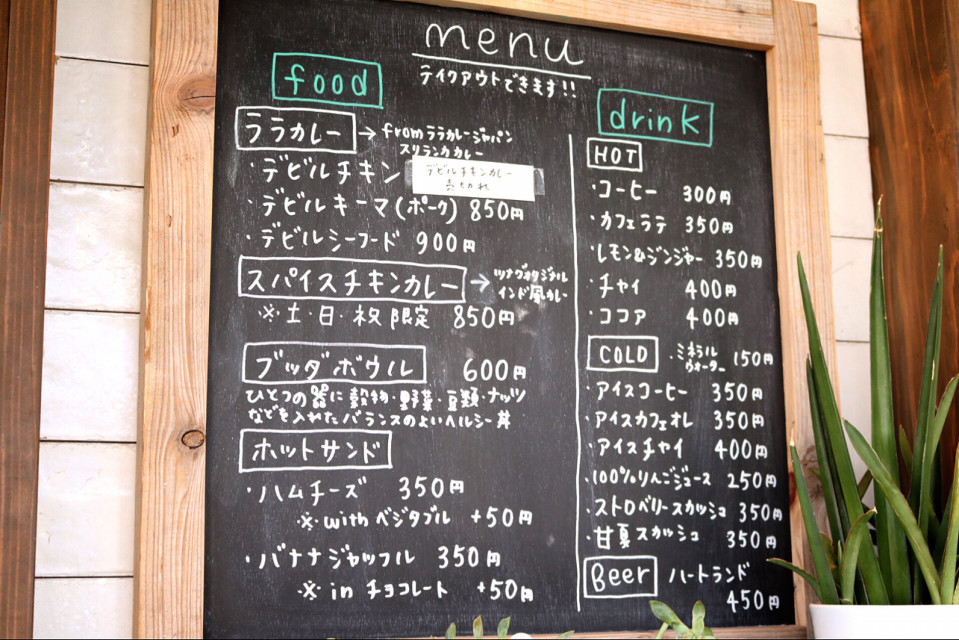 menu
テイクアウトできます!!
food
ララカレー → from ララカレージャパン
スリランカカレー
・デビルチキン
デビルチキンカレー
売り切れ
・デビルキーマ(ポーク) 850円
・デビルシーフード 900円
スパイスチキンカレー → ツナグオリジナル
インド風カレー
※土・日・祝 限定 850円
ブッダボウル 600円
ひとつの器に穀物・野菜・豆類・ナッツ
などを入れたバランスのよいヘルシー丼
ホットサンド
・ハムチーズ 350円
※with ベジタブル +50円
・バナナジャッフル 350円
※in チョコレート +50円
drink
HOT
・コーヒー 300円
・カフェラテ 350円
・レモン&ジンジャー 350円
・チャイ 400円
・ココア 400円
COLD ・ミネラル
ウォーター 150円
・アイスコーヒー 350円
・アイスカフェオレ 350円
・アイスチャイ 400円
・100%りんごジュース 250円
・ストロベリースカッシュ 350円
・甘夏スカッシュ 350円
Beer ハートランド
450円